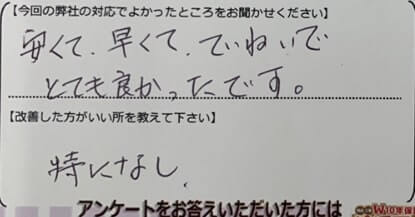 【今回の弊社の対応でよかったところをお聞かせください】
安くて、早くて、ていねいで
とても良かったです。
【改善した方がいい所を教えて下さい】
特になし、
アンケートをお答えいただいた方には